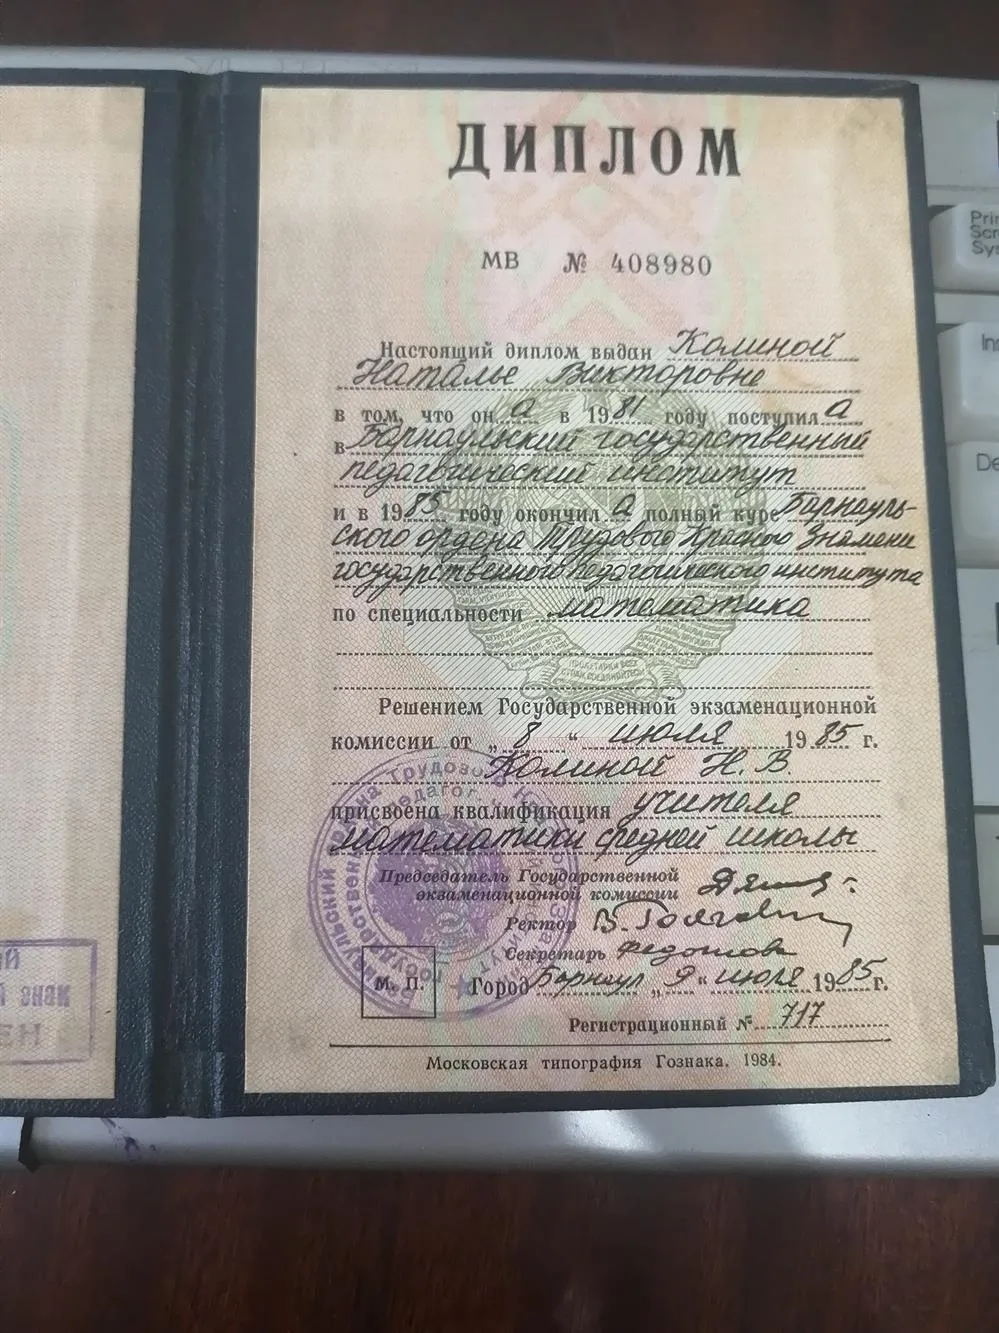 ДИПЛОМ
МВ № 408980
Настоящий диплом выдан Колиной
Наталье Викторовне
в том, что он а в 1981 году поступил а
в Барнаульский государственный
педагогический институт
и в 1985 году окончил а полный курс Барнауль-
ского ордена Трудового Красного Знамени
государственного педагогического института
по специальности математика
Решением Государственной экзаменационной
комиссии от „ 8 “ июля 1985 г.
Колиной Н. В.
присвоена квалификация учителя
математики средней школы
Председатель Государственной
экзаменационной комиссии
Ректор
Секретарь Федотова
М. П. Город Барнаул „ 9 “ июля 1985 г.
Регистрационный № 717
Московская типография Гознака. 1984.
Prin
Scr
Sys
Ins
De